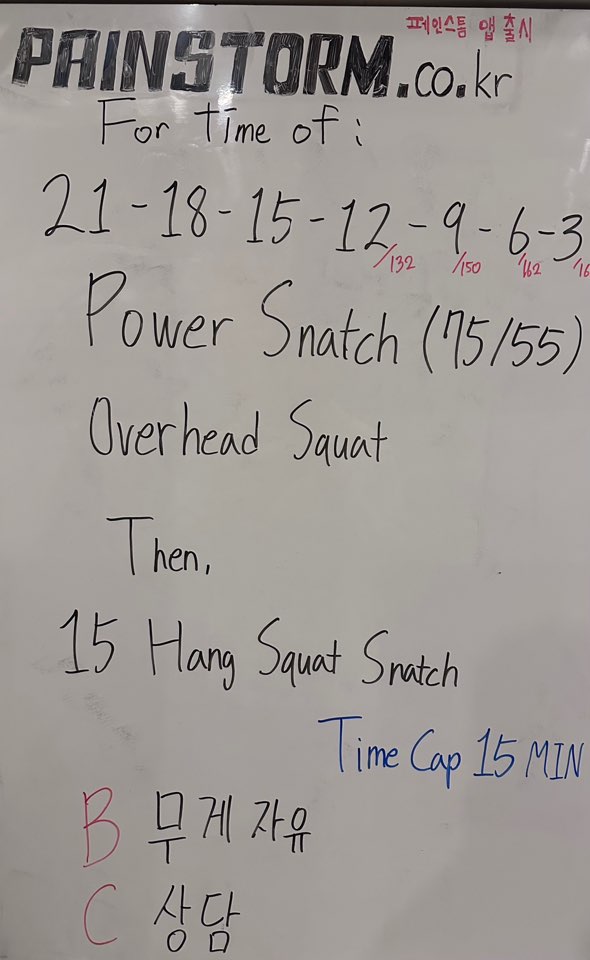 페인스톰 앱 출시
PAINSTORM.co.kr
For time of :
21-18-15-12-9-6-3
/132 /150 /162
Power Snatch (75/55)
Overhead Squat
Then,
15 Hang Squat Snatch
Time Cap 15 MIN
B 무게 자유
C 상담